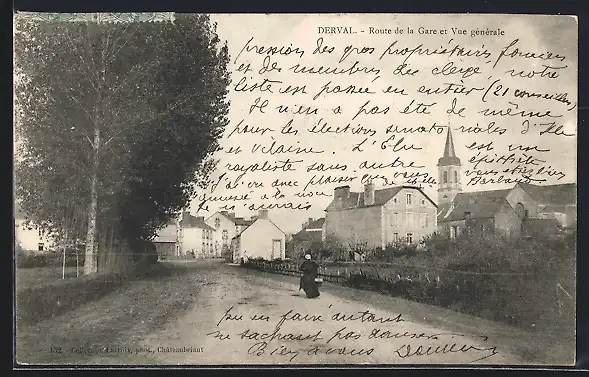 DERVAL. - Route de la Gare et Vue générale
pression des gros propriétaires fonciers
et des membres du clergé notre
liste est passée en entier (21 conseillers)
Il n'en a pas été de même
pour les élections sénatoriales d'Ille
et Vilaine. L'Élu est un
royaliste sans autre épithète
J'ai vu avec plaisir que vous vous étiez
amusé à la noce
Je n'aurais
pu en faire autant
ne sachant pas danser
Bien à vous
phot., Châteaubriant